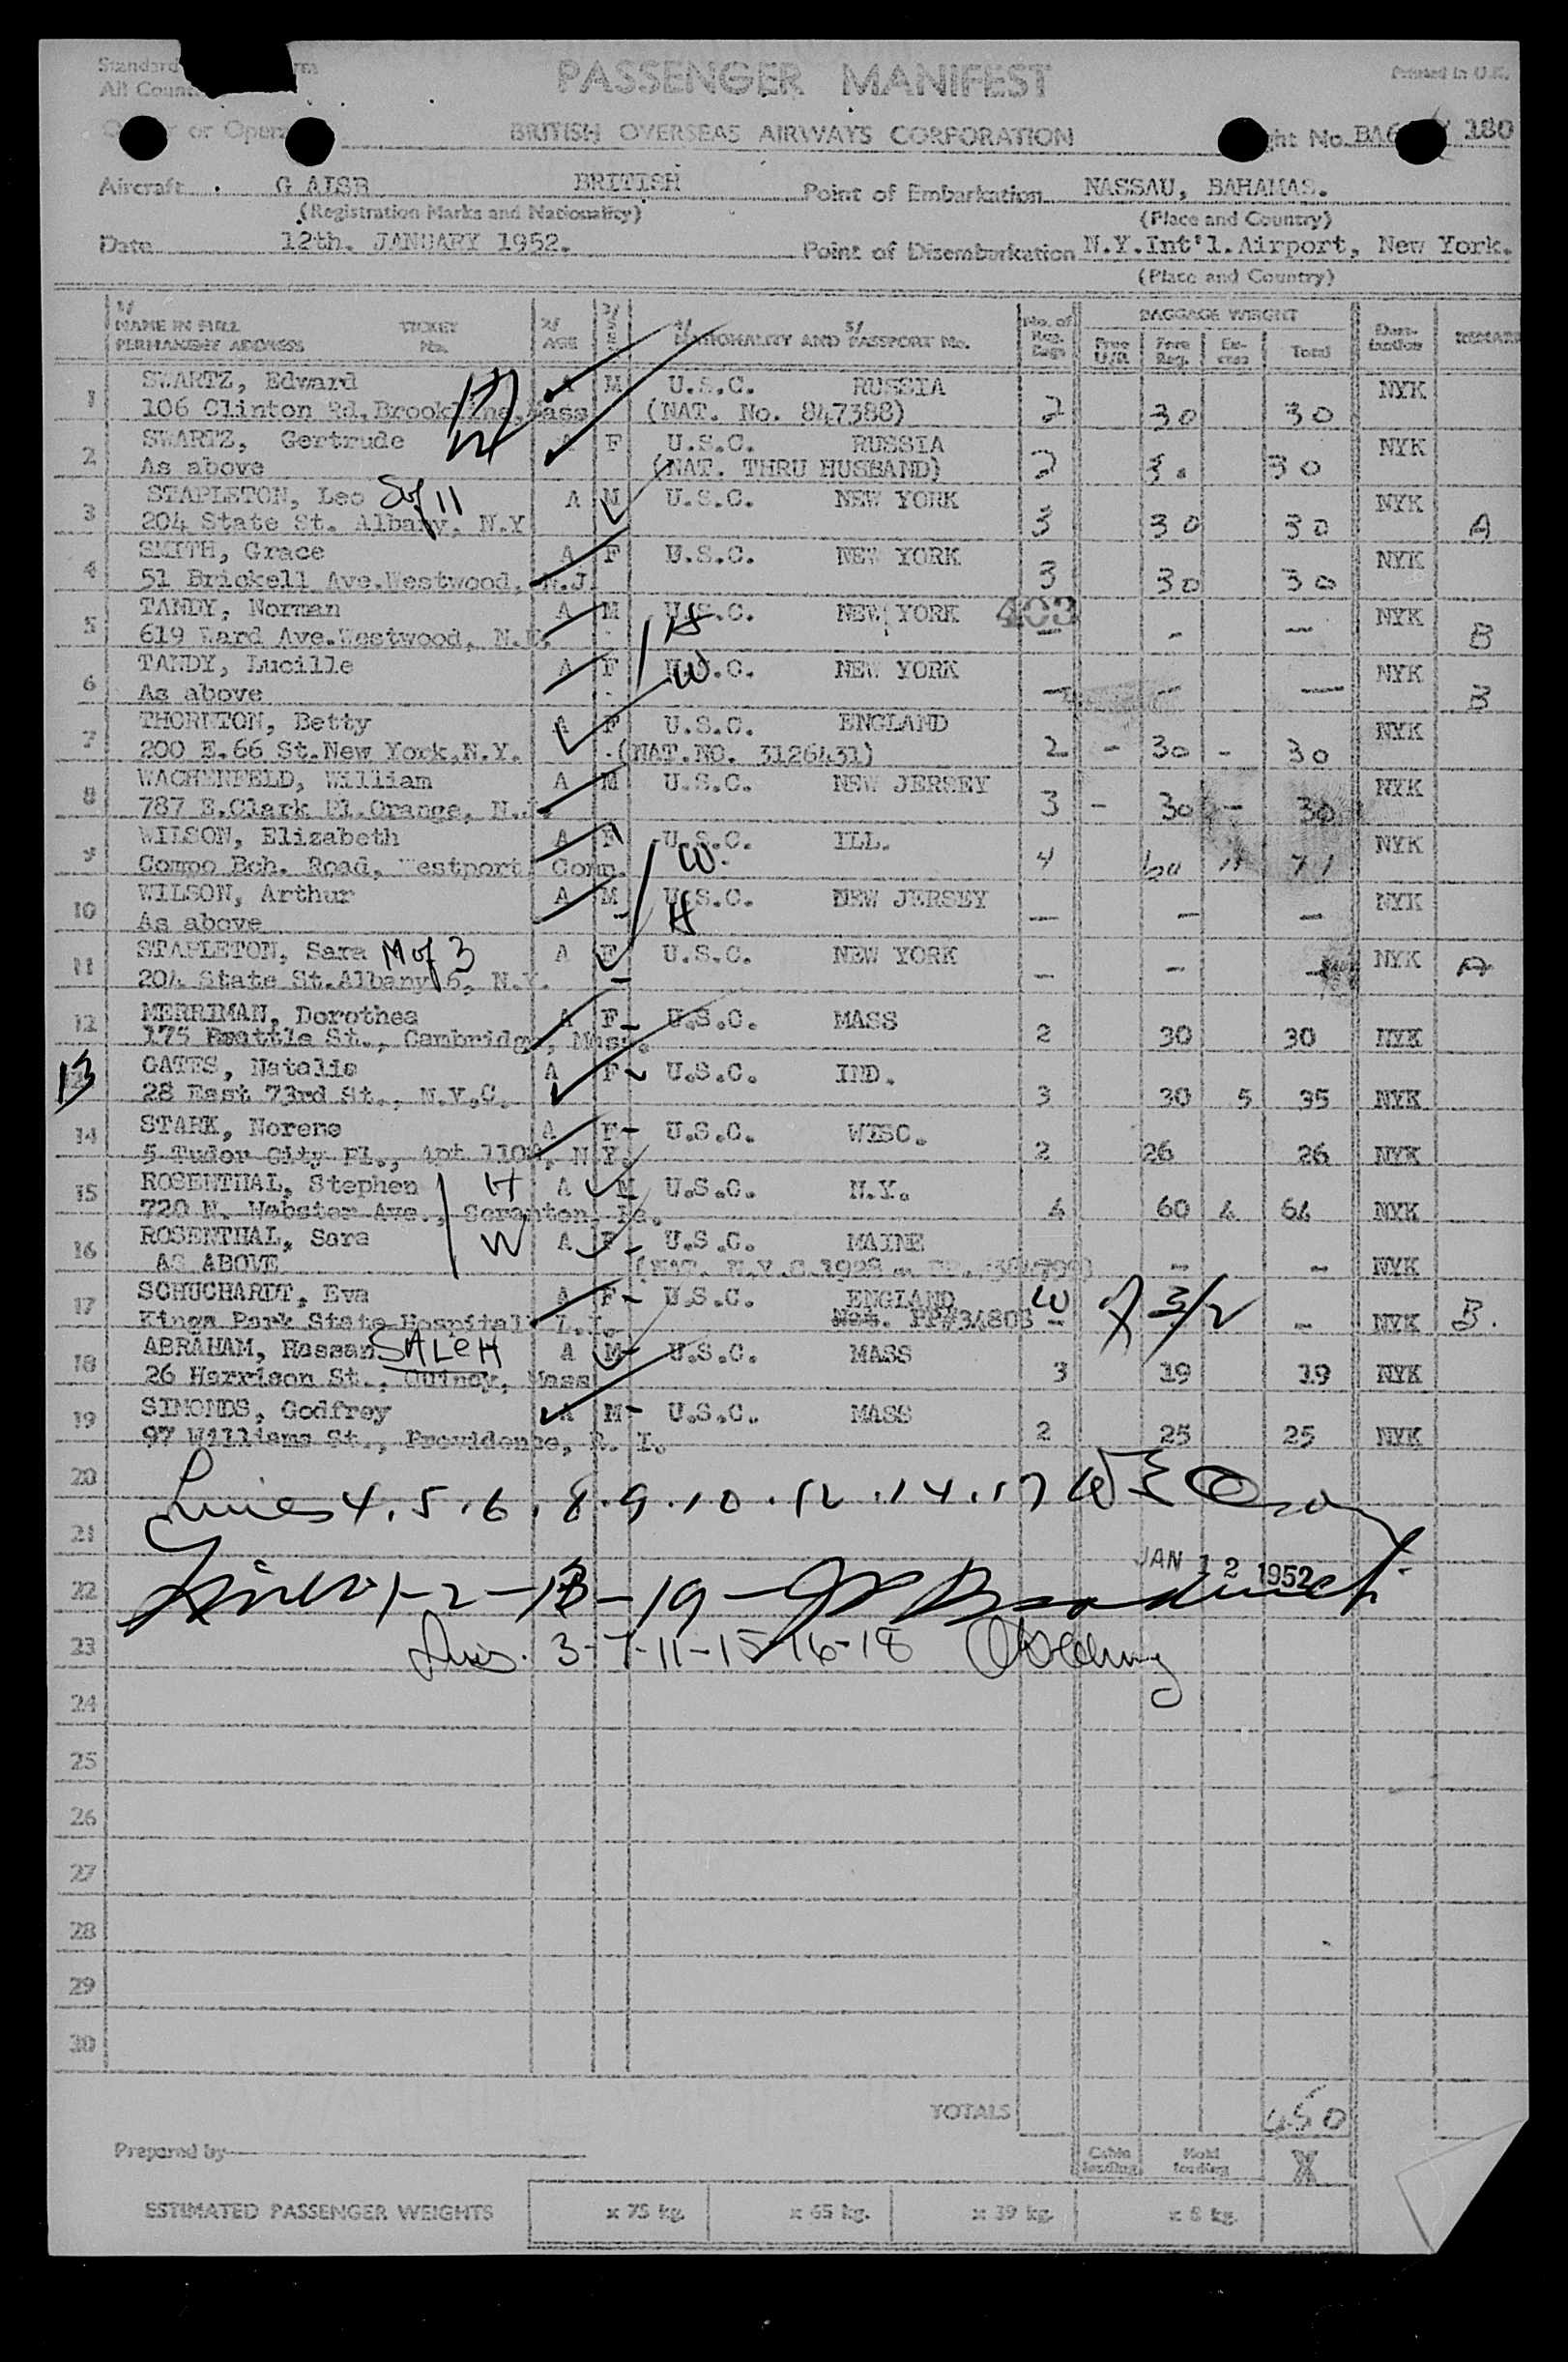 Standard
All Count
PASSENGER MANIFEST
Printed in U.K.
or Oper
BRITISH OVERSEAS AIRWAYS CORPORATION
ght No. BA6 180
Aircraft G AISB BRITISH
Point of Embarkation NASSAU, BAHAMAS.
(Registration Marks and Nationality)
(Place and Country)
Date 12th. JANUARY 1952.
Point of Disembarkation N.Y.Int'l.Airport, New York.
(Place and Country)
1/ NAME IN FULL PERMANENT ADDRESS TICKET No. 2/ AGE 3/ SEX 4/ NATIONALITY AND 5/ PASSPORT No. No. of Reg. Bags BAGGAGE WEIGHT Free U/R Free Reg. Ex-cess Total Dest-ination REMARK
1 SWARTZ, Edward H A M U.S.C. RUSSIA NYK
106 Clinton Rd, Brookline, Mass (NAT. No. 847388) 2 30 30
2 SWARTZ, Gertrude W A F U.S.C. RUSSIA NYK
As above (NAT. THRU HUSBAND) 2 30 30
3 STAPLETON, Leo S of 11 A M U.S.C. NEW YORK NYK
204 State St. Albany, N.Y 3 30 30 A
4 SMITH, Grace A F U.S.C. NEW YORK NYK
51 Brickell Ave. Westwood, N.J. 3 30 30
5 TANDY, Norman A M H U.S.C. NEW YORK 403 NYK
619 Ward Ave. Westwood, N.J. - - - B
6 TANDY, Lucille A F W U.S.C. NEW YORK NYK
As above - - - B
7 THORNTON, Betty A F U.S.C. ENGLAND NYK
200 E.66 St. New York, N.Y. (NAT.NO. 3126431) 2 - 30 - 30
8 WACHENFELD, William A M U.S.C. NEW JERSEY NYK
787 E.Clark Pl. Orange, N.J. 3 - 30 - 30
9 WILSON, Elizabeth A F U.S.C. ILL. NYK
Compo Bch. Road, Westport Conn. W. 4 60 11 71
10 WILSON, Arthur A M U.S.C. NEW JERSEY NYK
As above H - - -
11 STAPLETON, Sara M of 3 A F U.S.C. NEW YORK NYK A
204 State St. Albany 6, N.Y. - - -
12 MERRIMAN, Dorothea A F U.S.C. MASS
175 Brattle St., Cambridge, Mass. 2 30 30 NYK
13 GATES, Natalie A F U.S.C. IND.
28 East 73rd St., N.Y.C. 3 30 5 35 NYK
14 STARK, Norene A F U.S.C. WISC.
5 Tudor City Pl., Apt 1102, N.Y. 2 26 26 NYK
15 ROSENTHAL, Stephen H A M U.S.C. N.Y.
720 N. Webster Ave., Scranton, Pa. 4 60 4 64 NYK
16 ROSENTHAL, Sara W A F U.S.C. MAINE
AS ABOVE (NAT. N.Y.C. 1928 - - NYK
17 SCHUCHARDT, Eva A F U.S.C. ENGLAND
Kings Park State Hospital L.I. Nat. PP#34803 - W 7 3/2 - NYK B.
18 ABRAHAM, Hassan SALEH A M U.S.C. MASS
26 Harrison St., Quincy, Mass 3 19 19 NYK
19 SIMONDS, Godfrey A M U.S.C. MASS
97 Williams St., Providence, R. I. 2 25 25 NYK
20
Lines 4.5.6.8.9.10.12.14.17
21
JAN 12 1952
22 Lines 1-2-13-19-
23 Lines. 3-7-11-15-16-18
24
25
26
27
28
29
30
TOTALS 450
Prepared by
Cabin loading. Hold loading X
ESTIMATED PASSENGER WEIGHTS x 75 kg. x 65 kg. x 39 kg. x 8 kg.